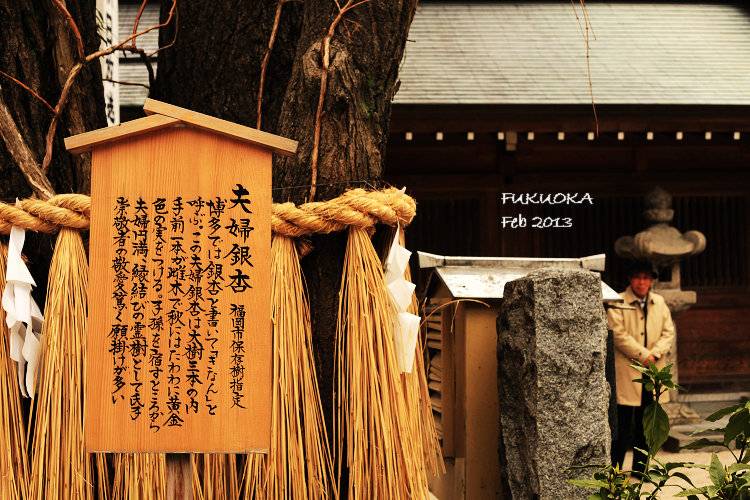 夫婦銀杏 福岡市保存樹指定
博多では銀杏と書いて「きなん」と
呼ぶ。この夫婦銀杏は大樹三本の内
手前一本が雌木で秋にはたわわに黄金
色の実をつける。子孫を宿すところから
夫婦円満、縁結びの霊樹として氏子
崇敬者の敬愛篤く願掛けが多い
FUKUOKA
Feb 2013